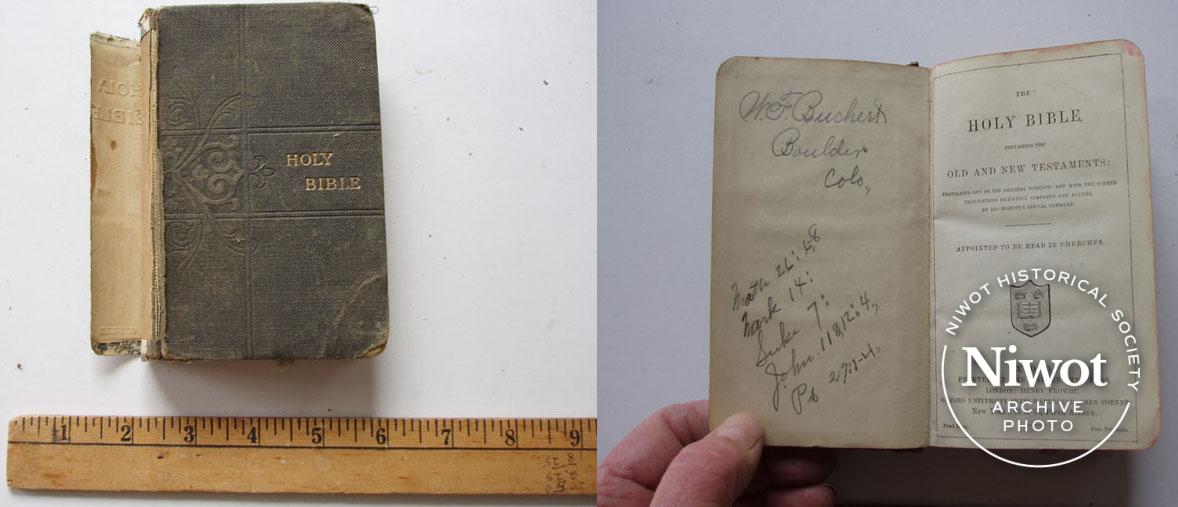 HOLY
BIBLE
HOLY
BIBLE
OXFORD
1 2 3 4 5 6 7 8 9
W. F. Buchert
Boulder
Colo,,
Math 26:
Mark 14:
Luke 7:
John. 11 &
Ps
THE
HOLY BIBLE,
CONTAINING THE
OLD AND NEW TESTAMENTS:
TRANSLATED OUT OF THE ORIGINAL TONGUES: AND WITH THE FORMER
TRANSLATIONS DILIGENTLY COMPARED AND REVISED,
BY HIS MAJESTY'S SPECIAL COMMAND.
APPOINTED TO BE READ IN CHURCHES.
LONDON: HENRY FROWDE,
NEW
NIWOT HISTORICAL SOCIETY
Niwot
ARCHIVE
PHOTO